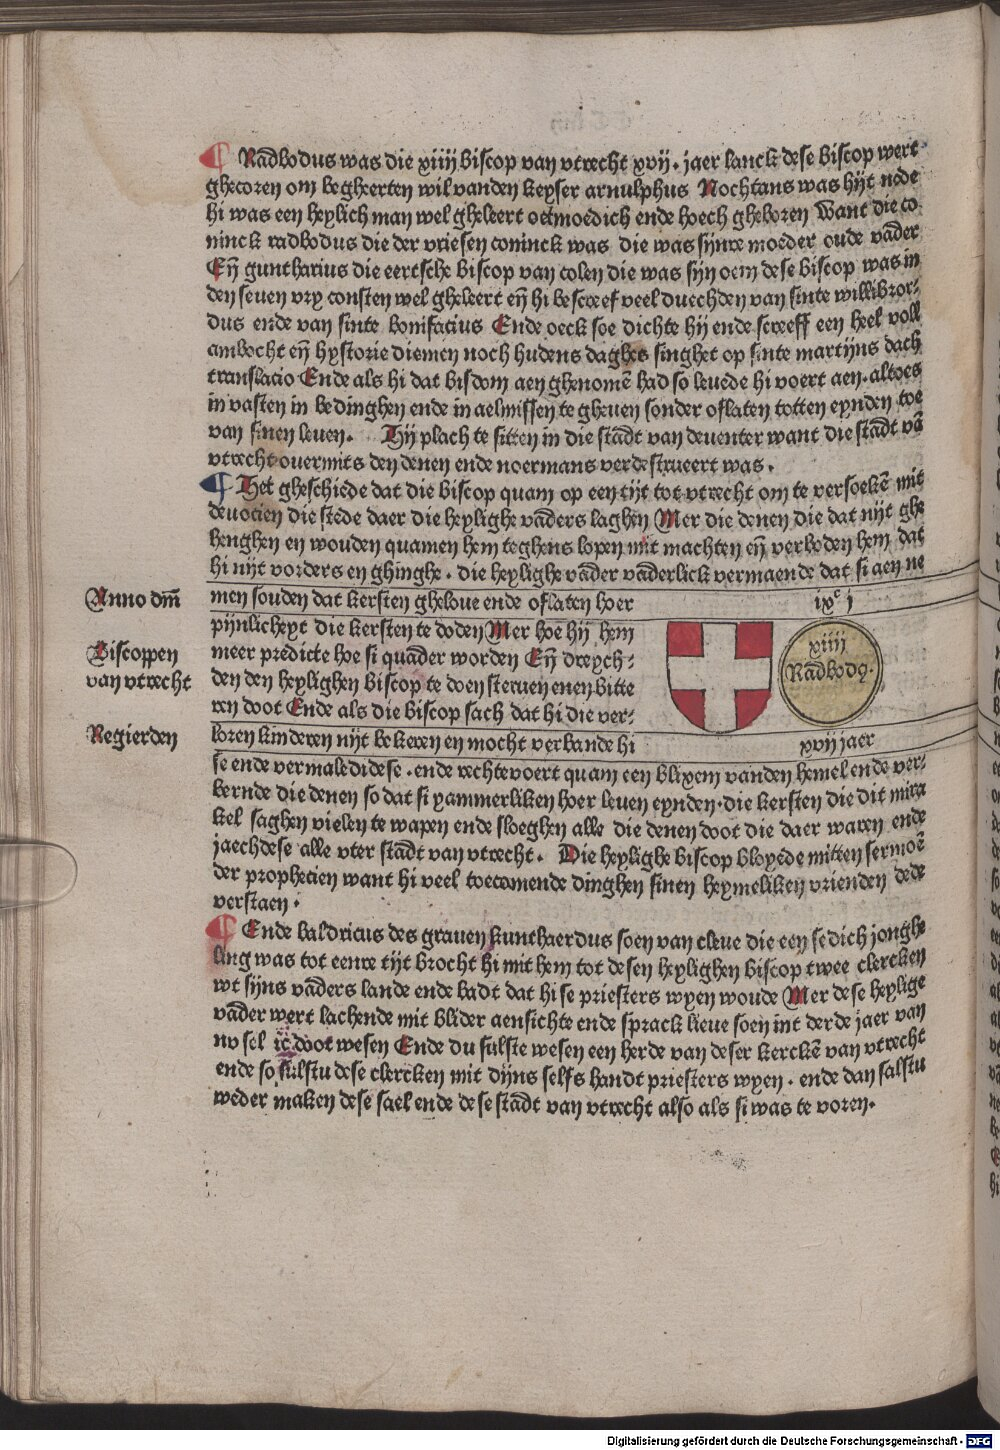 ¶ Radbodus was die xiiij biscop van vtrecht xvij. jaer lanck dese biscop wert
ghecoren om begheerten wil vanden keyser arnulphus Nochtans was hijt node
hi was een heylich man wel gheleert oetmoedich ende hoech gheboren Want die co
ninck radbodus die der vriesen coninck was die was sijnre moeder oude vader
Eñ guntharius die eertsche biscop van colen die was sijn oem dese biscop was in
den seuen vry consten wel gheleert eñ hi bescreef veel duechden van sinte willibror-
dus ende van sinte bonifacius Ende oeck soe dichte hij ende screeff een heel voll
ambocht eñ hystorie diemen noch hudens daghes singhet op sinte martijns dach
translacio Ende als hi dat bisdom aen ghenomē had so leuede hi voert aen. altoes
in vasten in bedinghen ende in aelmissen te gheuen sonder oflaten totten eynden toe
van sinen leuen. Hij plach te sitten in die stadt van deuenter want die stadt vā
vtrecht ouermits den denen ende noermans verdestrueert was.
¶ Het gheschiede dat die biscop quam op een tijt tot vtrecht om te versoekē mit
deuocien die stede daer die heylighe vaders laghen Mer die denen die dat nijt ghe
henghen en wouden quamen hem teghens lopen mit machten eñ verboden hem dat
hi nijt vorders en ghinghe. die heylighe vāder vāderlick vermaende dat si aen ne
Anno dm̄
men souden dat kersten gheloue ende oflaten hoer
ixᶜ j
pijnlicheyt die kersten te doden Mer hoe hij hem
Biscoppen
van vtrecht
meer predicte hoe si quāder worden Eñ dreych-
den den heylighen biscop te doen steruen enen bitte
ren doot Ende als die biscop sach dat hi die ver-
xiiij
Rādbodꝰ.
Regierden
boren kinderen nijt bekeren en mocht verbande hi
xvij jaer
se ende vermaledidese. ende rechtevoert quam een blixem vanden hemel ende ver-
bernde die denen so dat si yammerliken hoer leuen eynden. die kersten die dit mira
kel saghen vielen te wapen ende sloeghen alle die denen doot die daer waren ende
jaechdese alle vter stādt van vtrecht. Die heylighe biscop bloyede mitten sermoē
der prophecien want hi veel toecomende dinghen sinen heymeliken vrienden dede
verstaen.
¶ Ende baldricus des grauen kunthaerdus soen van cleue die een sedich jonghe
ling was tot eenre tijt brocht hi mit hem tot desen heylighen biscop twee clercken
wt sijns vāders lande ende badt dat hi se priesters wyen woude Mer dese heylige
vāder wert lachende mit blider aensichte ende sprack lieue soen int derde jaer van
nv sel ic doot wesen Ende du sulste wesen een herde van deser kerckē van vtrecht
ende so sulstu dese clercken mit dijns selfs handt priesters wyen. ende dan salstu
weder maken dese sael ende dese stādt van vtrecht also als si was te voren.
Digitalisierung gefördert durch die Deutsche Forschungsgemeinschaft - DFG